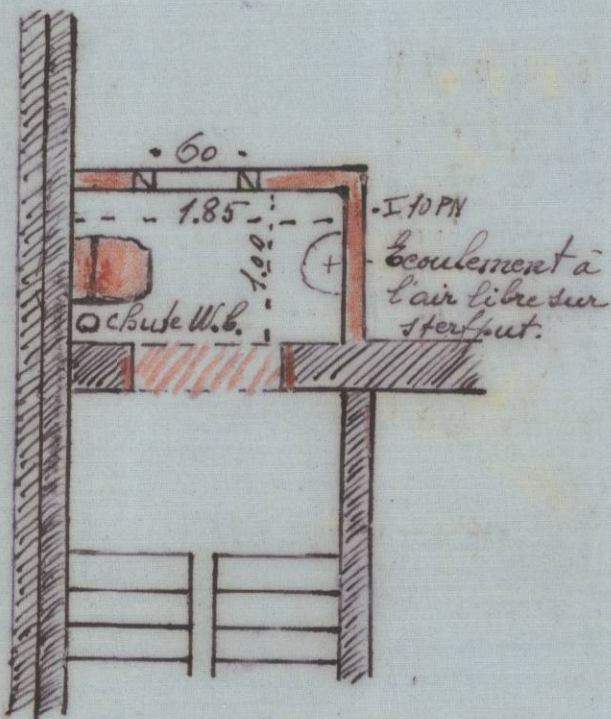 60
1.85
I 10 PN
1.00
Ecoulement à
l'air libre sur
sterfput.
chute W.C.